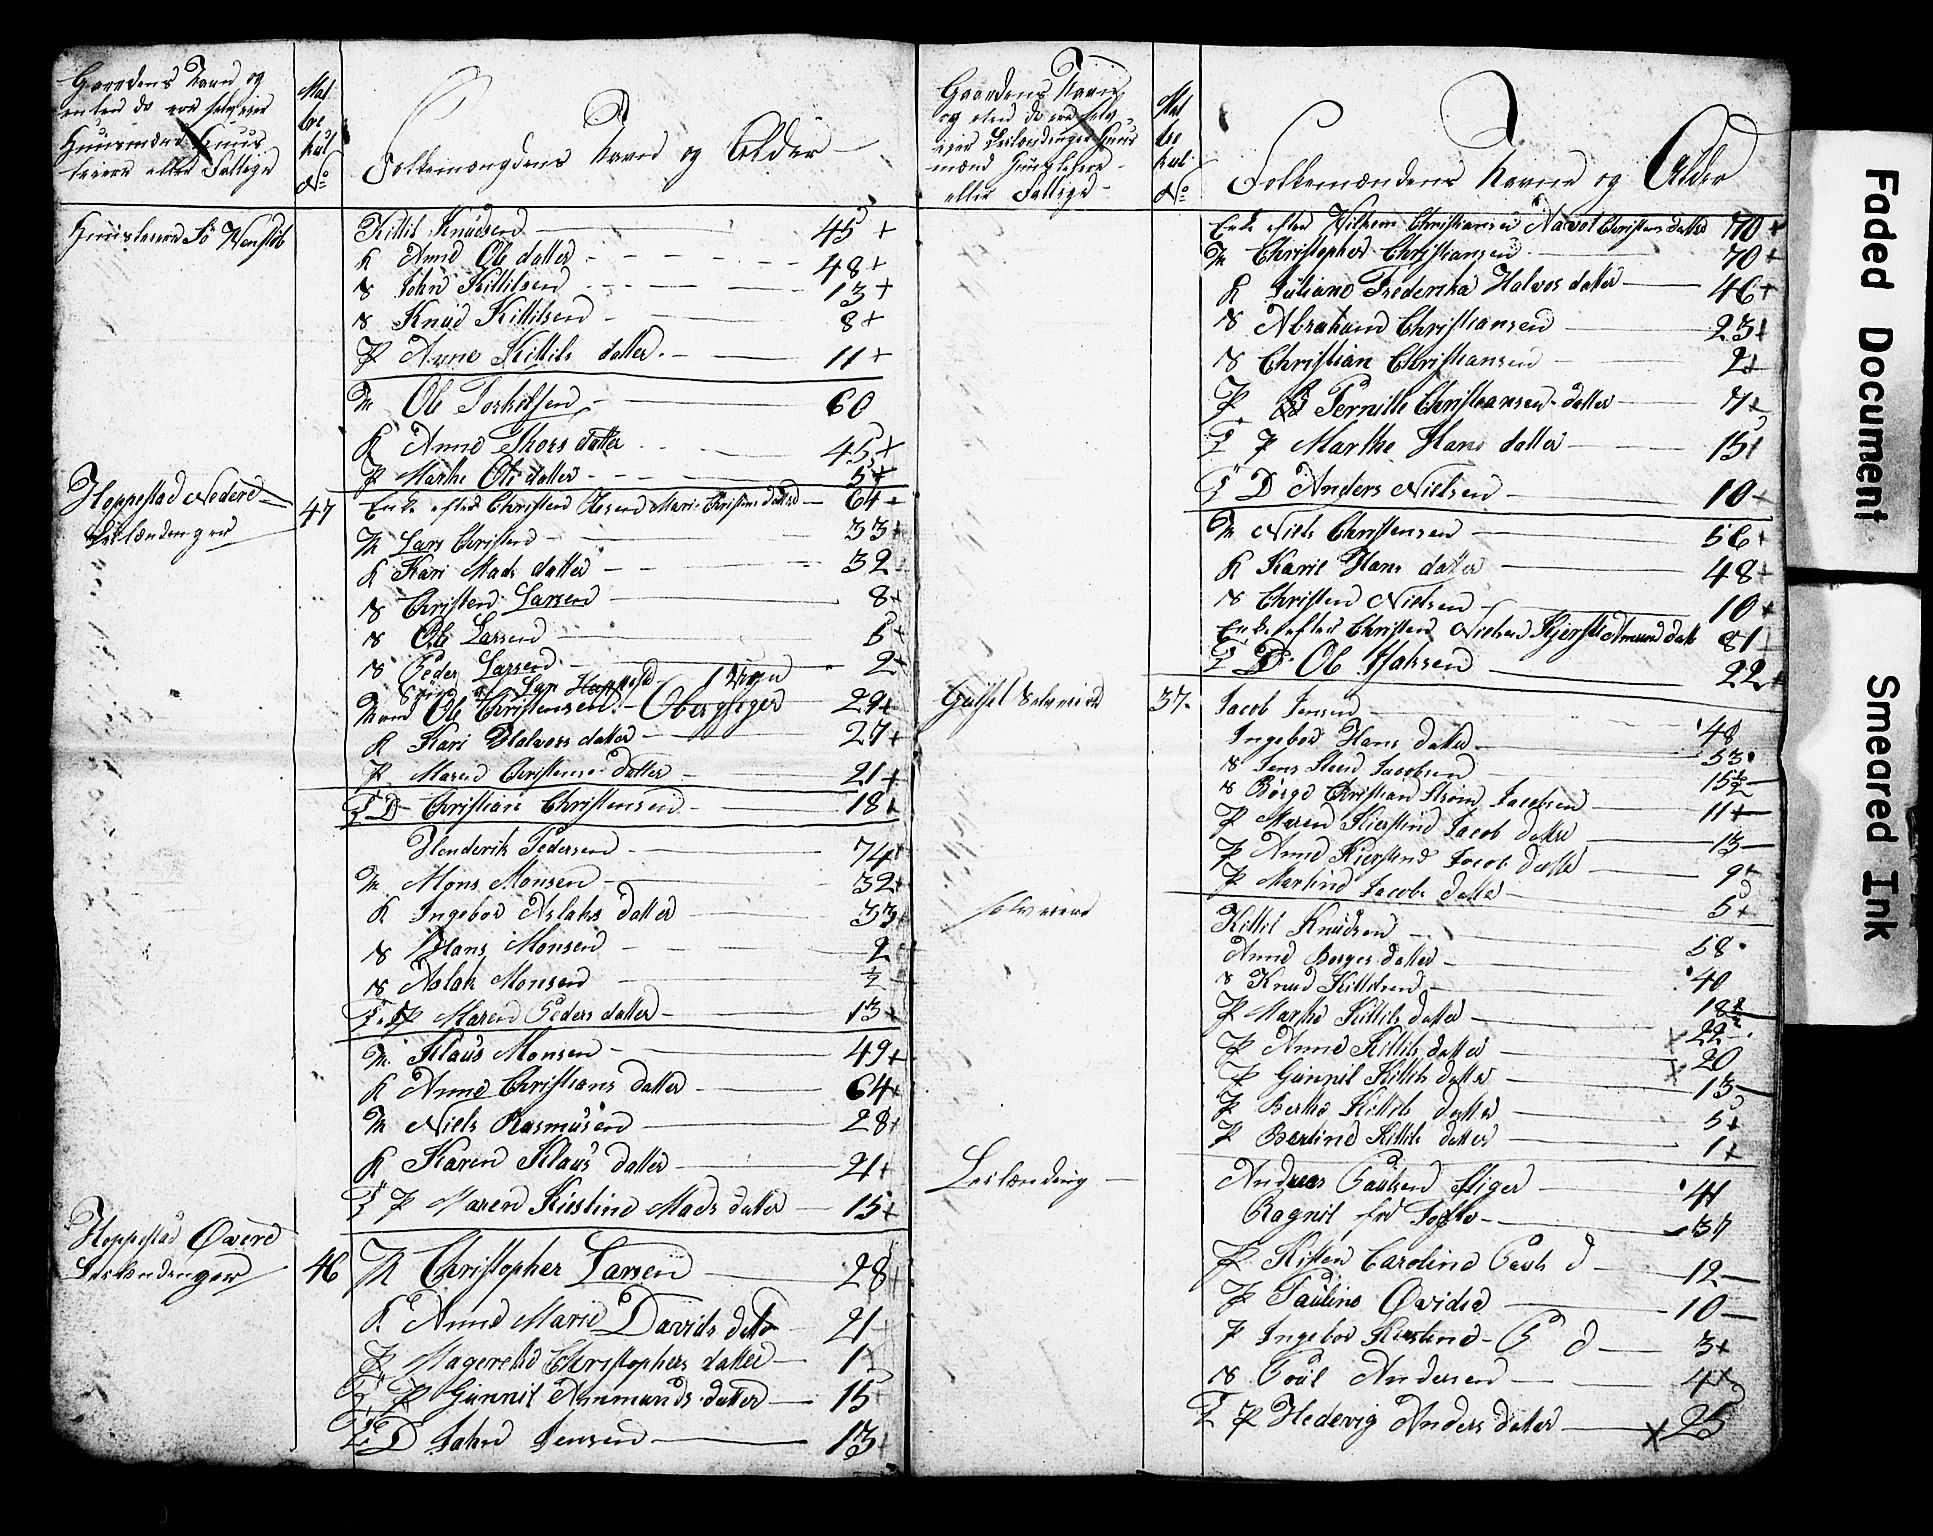 Gaardens Navn og
enten de ere selveier
Huusmænd Huus
leiere eller Fattige
Mat
tre
kul
No
Folkemængdens Navn og Alder
Huusleiere
Kittil Knudsen 45 +
K Anne Ole datter 48 +
S John Kittilsen 13 +
S Knud Kittilsen 8 +
P Anne Kittils datter 11 +
M Ole Torkilsen 60
K Anne Thors datter 45 +
P Marthe Ole datter 5 +
Hoppestad Nedere
Leilændinger
47
Enke efter Christen Olesen Mari Christens datter 64 +
M Lars Christen 33 +
K Kari Mads datter 32
S Christen Larsen 8 +
S Ole Larsen 5 +
S Peder Larsen 2 +
Lars Hoppestad
Mand Ole Christensen 29 +
K Kari Halvors datter 27 +
P Maren Christens datter 21 +
T D Christian Christensen 18 +
Henderik Pedersen 74 +
M Mons Monsen 32 +
K Ingebor Aslaks datter 33 +
S Hans Monsen 2
S Aslak Monsen ½
T P Maren Peders datter 13 +
M Klaus Monsen 49 +
K Anne Christians datter 64 +
M Niels Rasmusen 28 +
K Karen Klaus datter 21 +
T P Maren Kirstine Mads datter 15 +
Hoppestad Øvere
Leilændinger
46
M Christopher Larsen 28
K Anne Marie Davids datter 21
P Magerethe Christophers datter 1
T P Gunnil Ammunds datter 15
T D John Jensen 13
Gaardens Navn
og enten de ere selv
eier Leilændinger Huus
mænd Huusleiere
eller Fattige
Mat
tre
kul
No
Folkemændens Navne og Alder
Enke efter Wilhelm Christiansen Christens datter 70 +
M Christopher Christiansen 70 +
K Juliane Frederika Halvors datter 46 +
S Abraham Christiansen 23 +
S Christian Christiansen 2 +
P Pernille Christiansen datter 7 +
T P Marthe Hans datter 15
T D Anders Nielsen 10
M Niels Christensen 56 +
K Karie Hans datter 48 +
S Christen Nielsen 10 +
Enke efter Christen Nielsen Kjersti Amund datt 81
T D Ole Isaksen 22
Gulset Selveiere
37
Jacob Jensen 48
Ingebor Hans datter 53
S Jens Steen Jacobsen 15 ½
S Børge Christian Strøm Jacobsen 11 +
P Maren Kierstine Jacob datter 13
P Anne Kierstine Jacob datter 9 +
P Martine Jacobs datter 5 +
selveiere
Kittil Knudsen 58
Anne Børges datter 40
S Knud Kittilsen 18
P Marthe Kittils datter 22
P Anne Kittils datter 20
P Gunnil Kittils datter 13
P Berthe Kittils datter 5 +
P Bertine Kittils datter 1 +
Leilænding
Andreas Paulsen Stiger 41
Ragnil 37
P Kisten Caroline Pauls d 12
P Pauline 10
P Ingebor Kirstine P d 3 +
S Poul Andersen 4 +
T P Hedevig Anders datter x 25
Faded Document
Smeared Ink